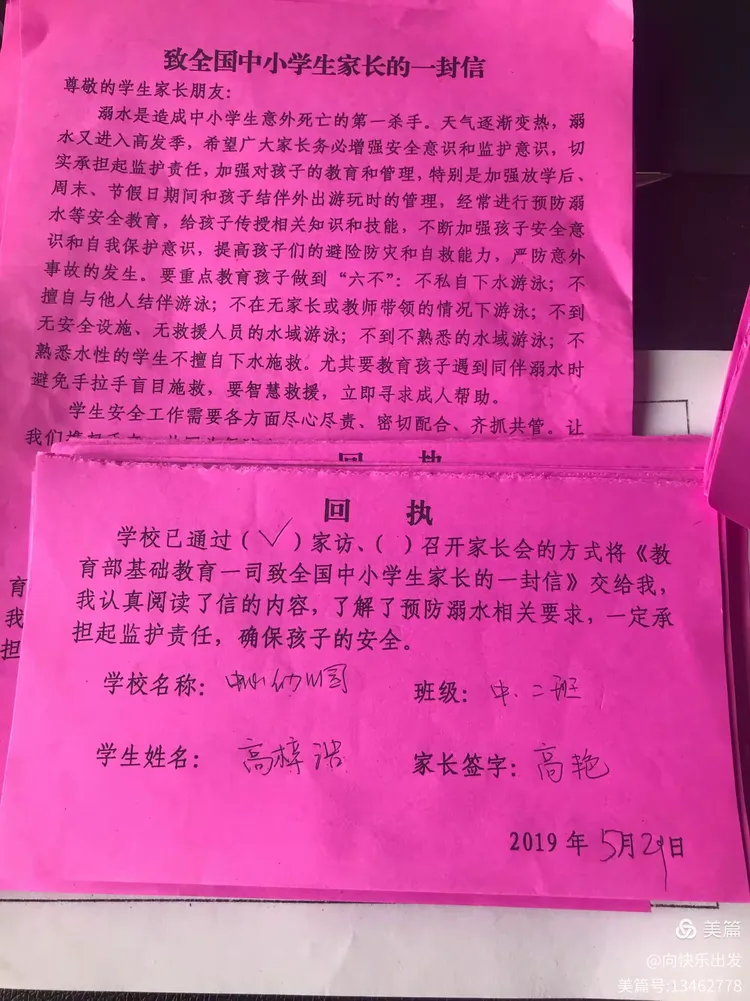 致全国中小学生家长的一封信
尊敬的学生家长朋友：
溺水是造成中小学生意外死亡的第一杀手。天气逐渐变热，溺
水又进入高发季，希望广大家长务必增强安全意识和监护意识，切
实承担起监护责任，加强对孩子的教育和管理，特别是加强放学后、
周末、节假日期间和孩子结伴外出游玩时的管理，经常进行预防溺
水等安全教育，给孩子传授相关知识和技能，不断加强孩子安全意
识和自我保护意识，提高孩子们的避险防灾和自救能力，严防意外
事故的发生。要重点教育孩子做到“六不”：不私自下水游泳；不
擅自与他人结伴游泳；不在无家长或教师带领的情况下游泳；不到
无安全设施、无救援人员的水域游泳；不到不熟悉的水域游泳；不
熟悉水性的学生不擅自下水施救。尤其要教育孩子遇到同伴溺水时
避免手拉手盲目施救，要智慧救援，立即寻求成人帮助。
学生安全工作需要各方面尽心尽责、密切配合、齐抓共管。让
我们
回 执
回 执
学校已通过（√）家访、（ ）召开家长会的方式将《教
育部基础教育一司致全国中小学生家长的一封信》交给我，
我认真阅读了信的内容，了解了预防溺水相关要求，一定承
担起监护责任，确保孩子的安全。
育
我
担
学校名称： 幼儿园 班级：中.二班
学生姓名： 高梓浩 家长签字：高艳
2019 年 5月29日
美篇
@向快乐出发
美篇号:13462778